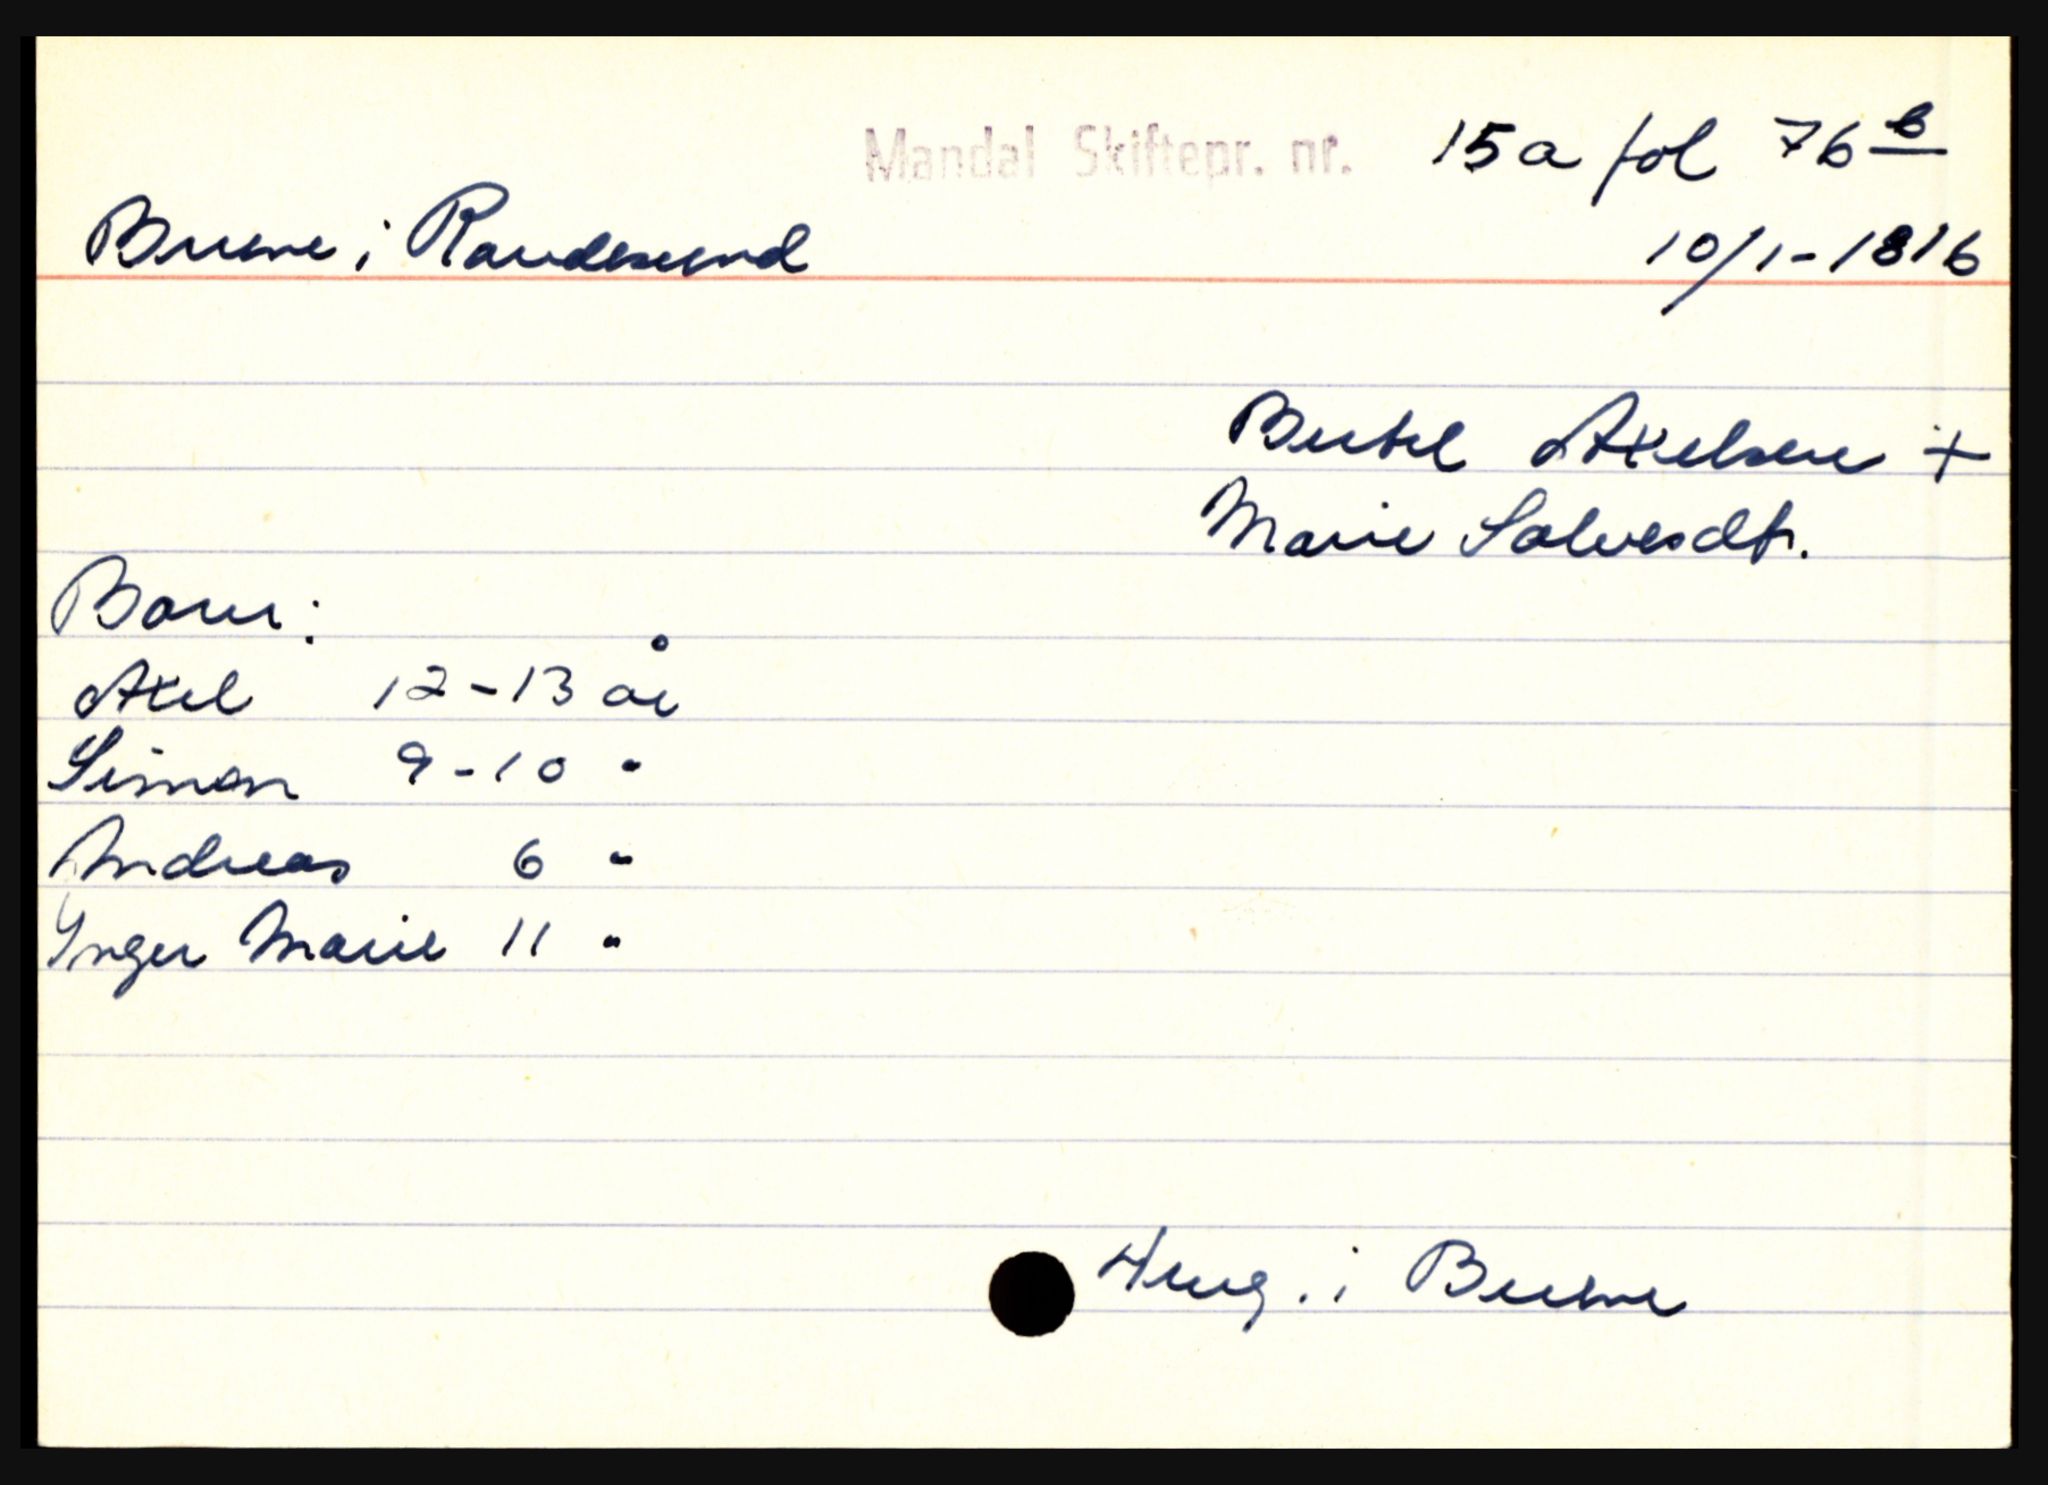 Mandal Skiftepr. nr. 15a fol 76 b
Buene i Randesund 10/1-1816
Bertel Axelsen +
Marie Salvesdtr.
Barn:
Axel 12-13 år
Simon 9-10 "
Andreas 6 "
Inger Marie 11 "
i Buene